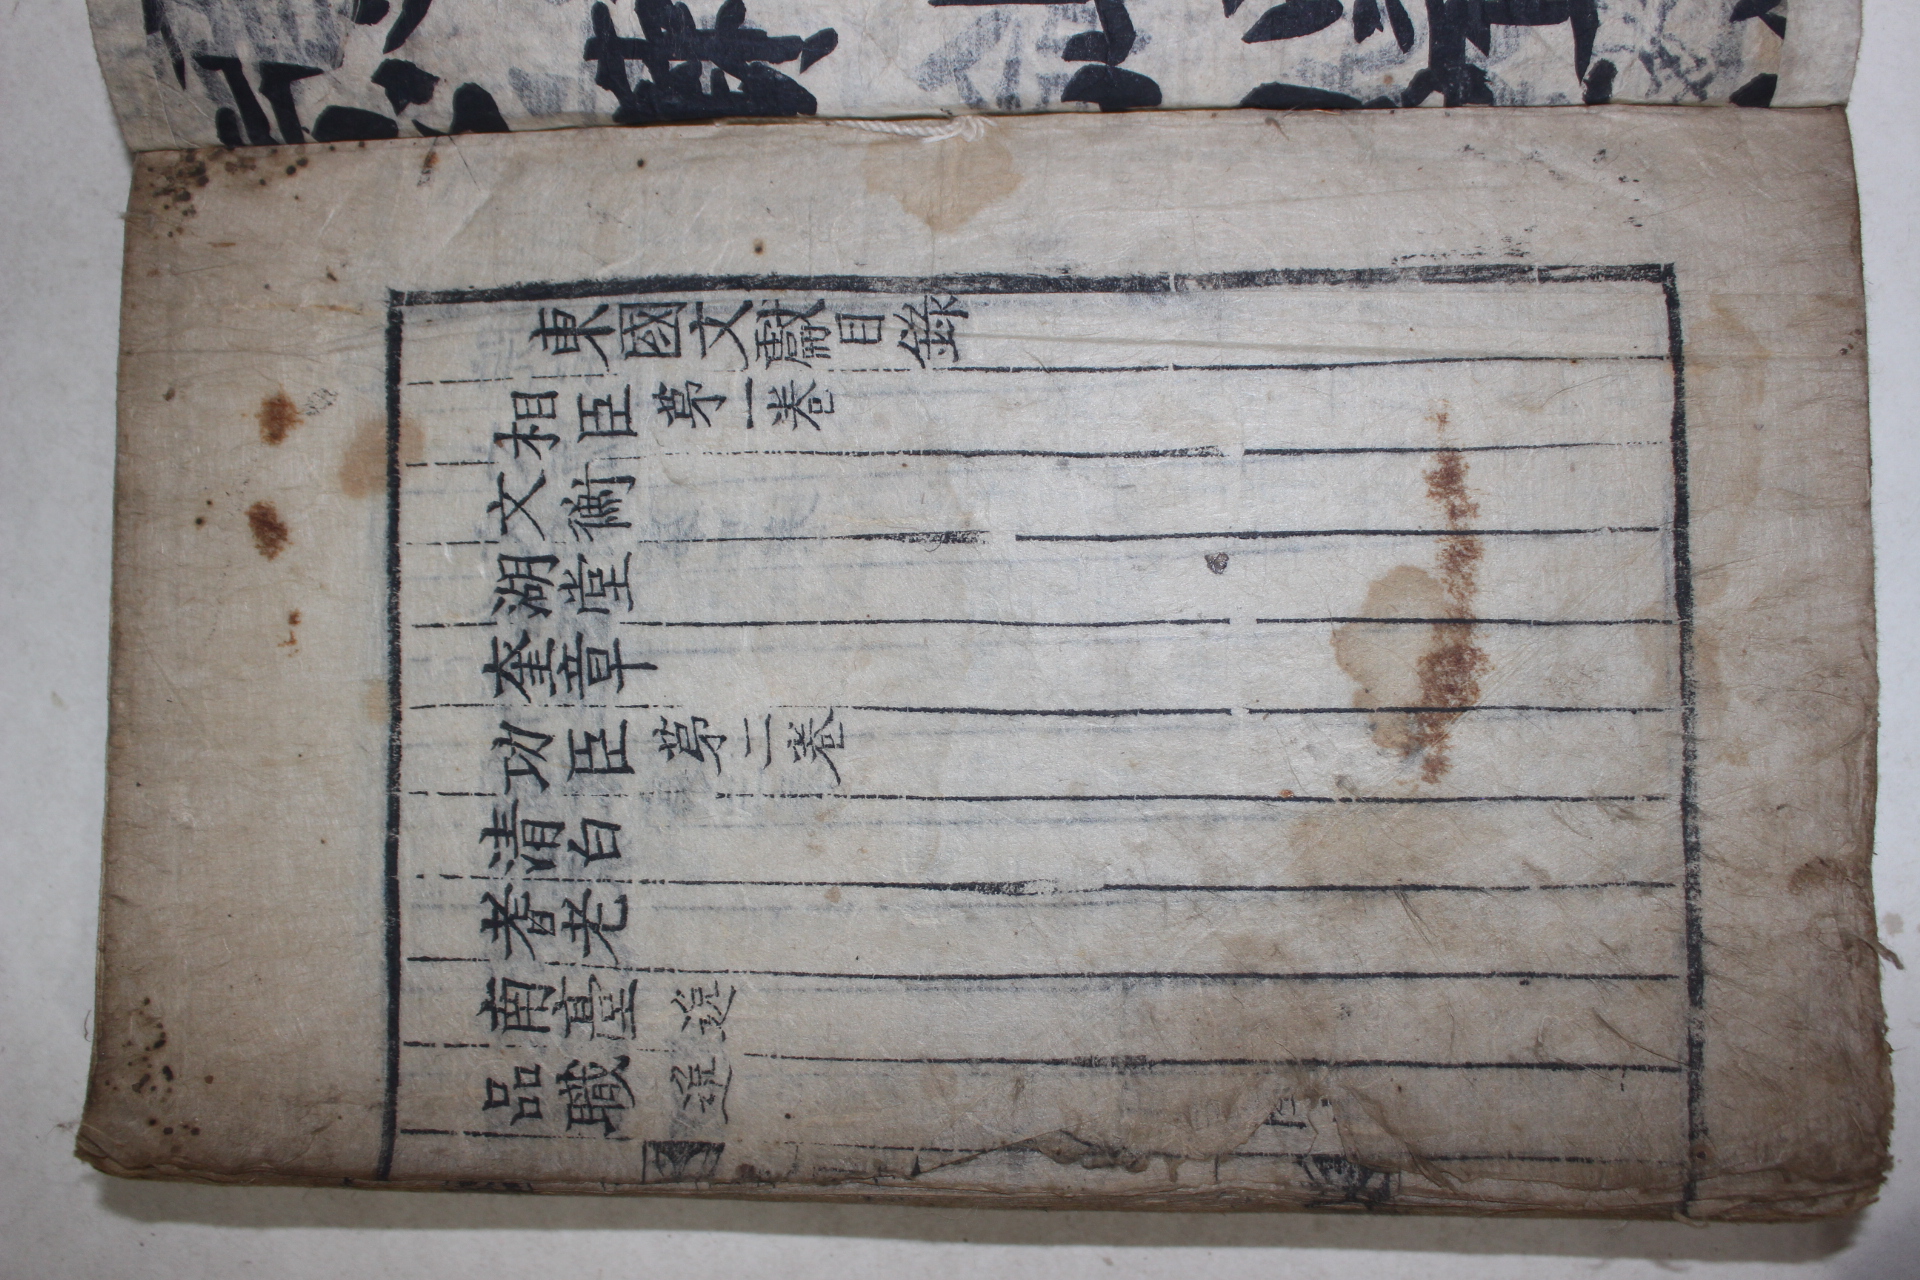 東國文獻目錄
相臣 苐一卷
文衡
湖堂
奎章
功臣 苐二卷
清白
耆老
南臺 选
品職 选